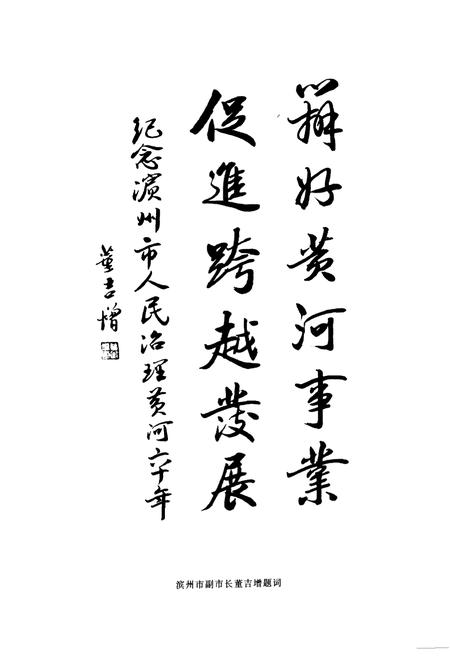 辦好黄河事業
促進跨越發展
纪念濱州市人民治理黄河六十年
董吉增
滨州市副市长董吉增题词